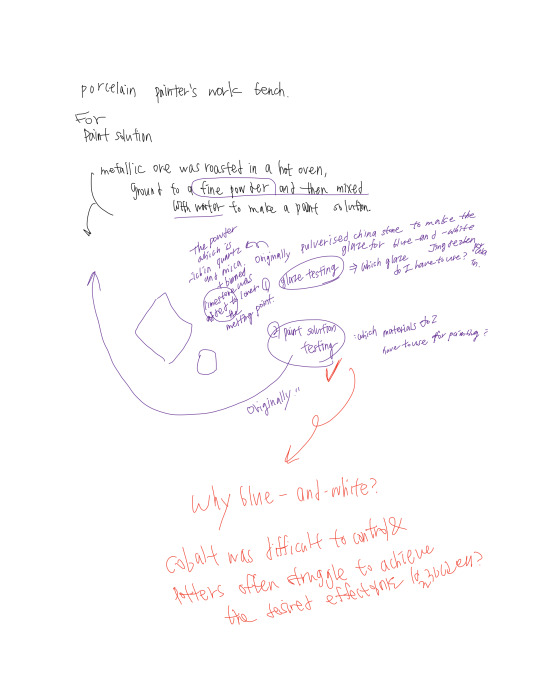 porcelain painter's work bench.
For
paint solution
metallic ore was roasted in a hot oven,
ground to a fine powder and then mixed
with water to make a paint solution.
the powder
which is
rich in quartz
and mica.
+ burned
limestone was
added to lower
the
melting point.
Originally pulverised china stone to make the
glaze for blue-and-white
Jingdezhen
① glaze testing ⇒ which glaze
do I have to use?
② paint solution
testing
: which materials do I
have to use for painting?
Originally "
Why blue-and-white?
Cobalt was difficult to control &
potters often struggle to achieve
the desired effect